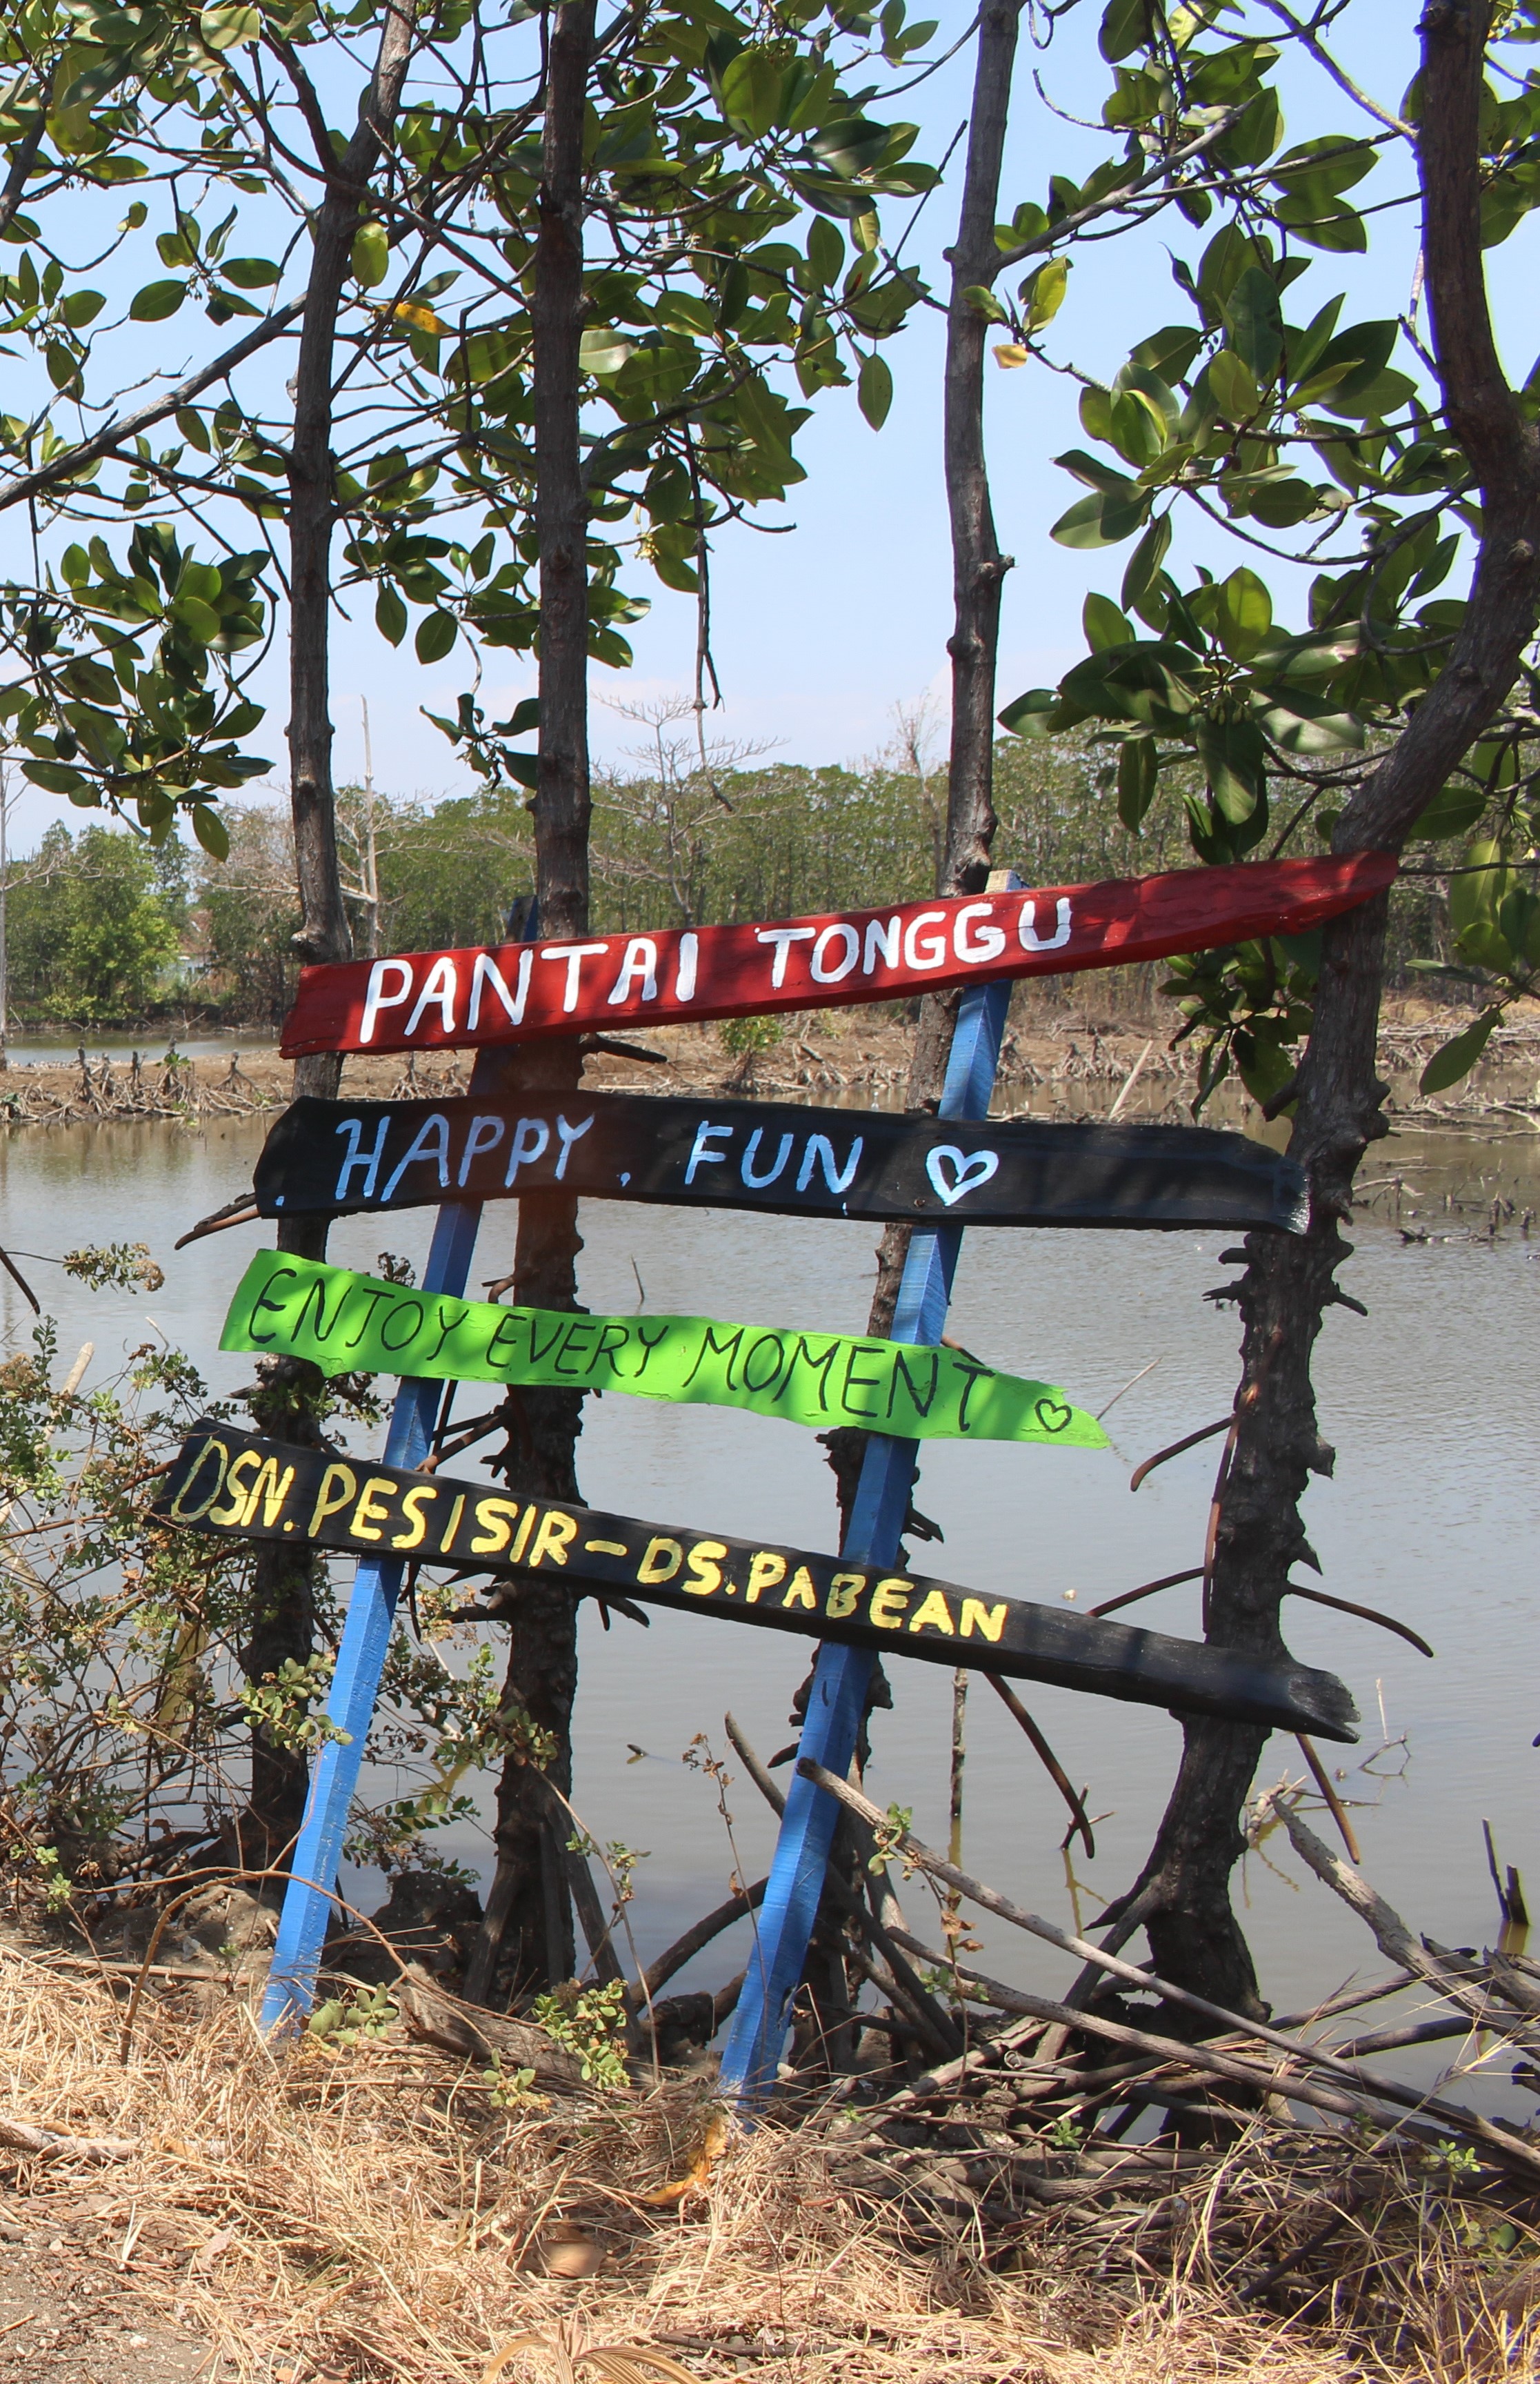 PANTAI TONGGU
. HAPPY . FUN ♡
ENJOY EVERY MOMENT ♡
DSN. PESISIR - DS. PABEAN